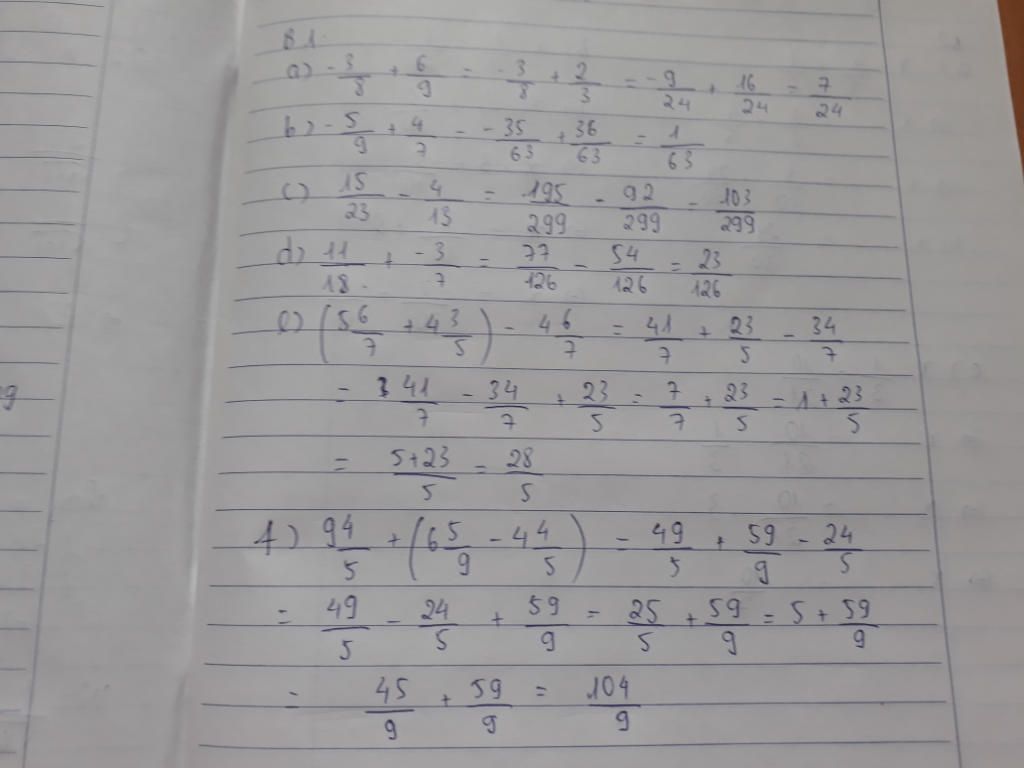 B1.
a) -3/8 + 6/9 = -3/8 + 2/3 = -9/24 + 16/24 = 7/24
b) -5/9 + 4/7 = -35/63 + 36/63 = 1/63
c) 15/23 - 4/13 = 195/299 - 92/299 = 103/299
d) 11/18 + -3/7 = 77/126 - 54/126 = 23/126
e) (5 6/7 + 4 3/5) - 4 6/7 = 41/7 + 23/5 - 34/7
= 41/7 - 34/7 + 23/5 = 7/7 + 23/5 = 1 + 23/5
= 5+23/5 = 28/5
f) 9 4/5 + (6 5/9 - 4 4/5) = 49/5 + 59/9 - 24/5
= 49/5 - 24/5 + 59/9 = 25/5 + 59/9 = 5 + 59/9
= 45/9 + 59/9 = 104/9